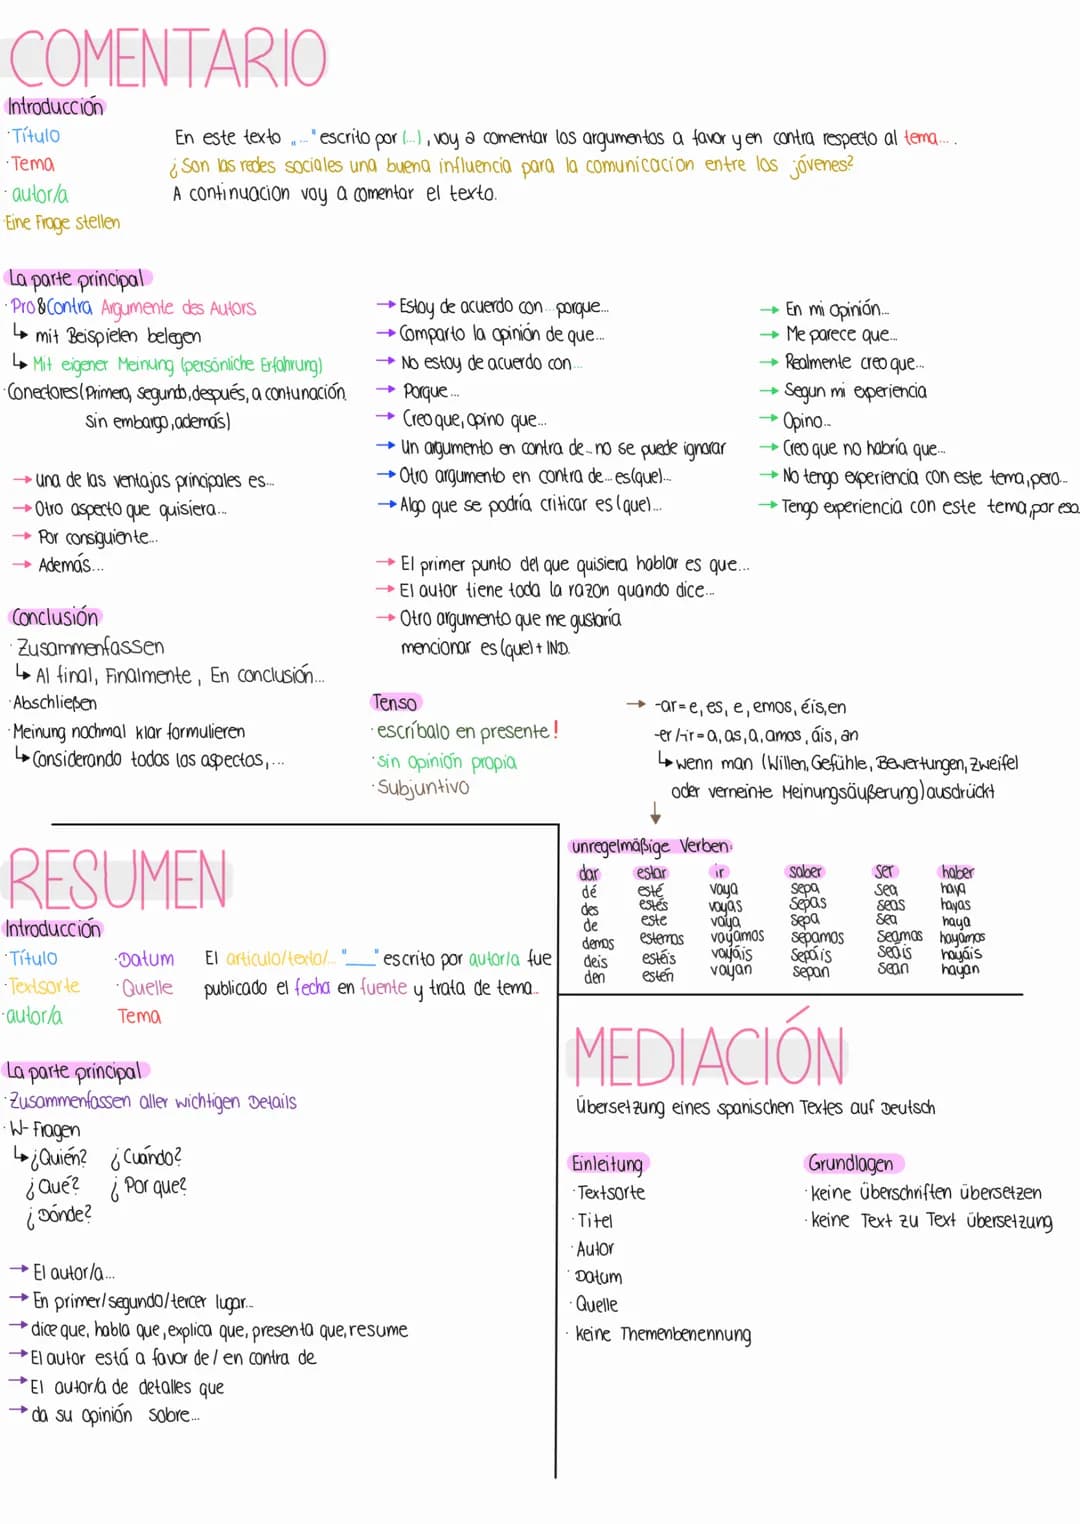 COMENTARIO
Introducción
· Título
En este texto „..." escrito por (...), voy a comentar los argumentos a favor y en contra respecto al tema... .
· Tema
¿Son las redes sociales una buena influencia para la comunicacion entre los jóvenes?
· autor/a
A continuacion voy a comentar el texto.
· Eine Frage stellen
La parte principal
· Pro & Contra Argumente des Autors
↳ mit Beispielen belegen
↳ Mit eigener Meinung (persönliche Erfahrung)
· Conectores (Primero, segundo, después, a contunación,
sin embargo, además)
→ una de las ventajas principales es...
→ Otro aspecto que quisiera...
→ Por consiguiente...
→ Además...
→ Estoy de acuerdo con... porque...
→ Comparto la opinión de que...
→ No estoy de acuerdo con...
→ Porque...
→ Creo que, opino que...
→ Un argumento en contra de... no se puede ignorar
→ Otro argumento en contra de... es (que)...
→ Algo que se podría criticar es (que)...
→ El primer punto del que quisiera hablar es que...
→ El autor tiene toda la razon quando dice...
→ Otro argumento que me gustaría
mencionar es (que) + IND.
→ En mi opinión...
→ Me parece que...
→ Realmente creo que...
→ Segun mi experiencia
→ Opino...
→ Creo que no habría que...
→ No tengo experiencia con este tema, pero...
→ Tengo experiencia con este tema, por eso
Conclusión
· Zusammenfassen
↳ Al final, Finalmente, En conclusión...
· Abschließen
· Meinung nochmal klar formulieren
↳ Considerando todos los aspectos, ...
Tenso
· escríbalo en presente!
· sin opinión propia
· Subjuntivo
→ -ar = e, es, e, emos, éis, en
-er/-ir = a, as, a, amos, áis, an
↳ wenn man (Willen, Gefühle, Bewertungen, Zweifel
oder verneinte Meinungsäußerung) ausdrückt
↓
unregelmäßige Verben:
dar estar ir saber ser haber
dé esté vaya sepa sea haya
des estés vayas sepas seas hayas
de este vaya sepa sea haya
demos estemos vayamos sepamos seamos hayamos
deis estéis vayáis sepáis seáis hayáis
den estén vayan sepan sean hayan
RESUMEN
Introducción
· Título · Datum El articulo/texto/... "___" escrito por autor/a fue
· Textsorte · Quelle publicado el fecha en fuente y trata de tema...
· autor/a Tema
La parte principal
· Zusammenfassen aller wichtigen Details
· W-Fragen
↳ ¿Quién? ¿Cuándo?
¿Qué? ¿Por que?
¿Dónde?
→ El autor/a...
→ En primer/segundo/tercer lugar...
→ dice que, habla que, explica que, presenta que, resume
→ El autor está a favor de / en contra de
→ El autor/a de detalles que
→ da su opinión sobre...
MEDIACIÓN
Übersetzung eines spanischen Textes auf Deutsch
Einleitung
· Textsorte
· Titel
· Autor
· Datum
· Quelle
· keine Themenbenennung
Grundlagen
· keine Überschriften übersetzen
· keine Text zu Text übersetzung